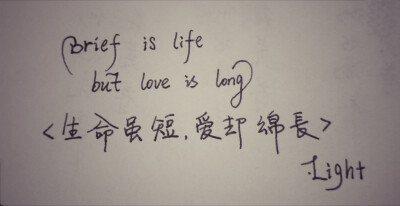 Brief is life
but love is long
<生命虽短,爱却綿長>
·Light